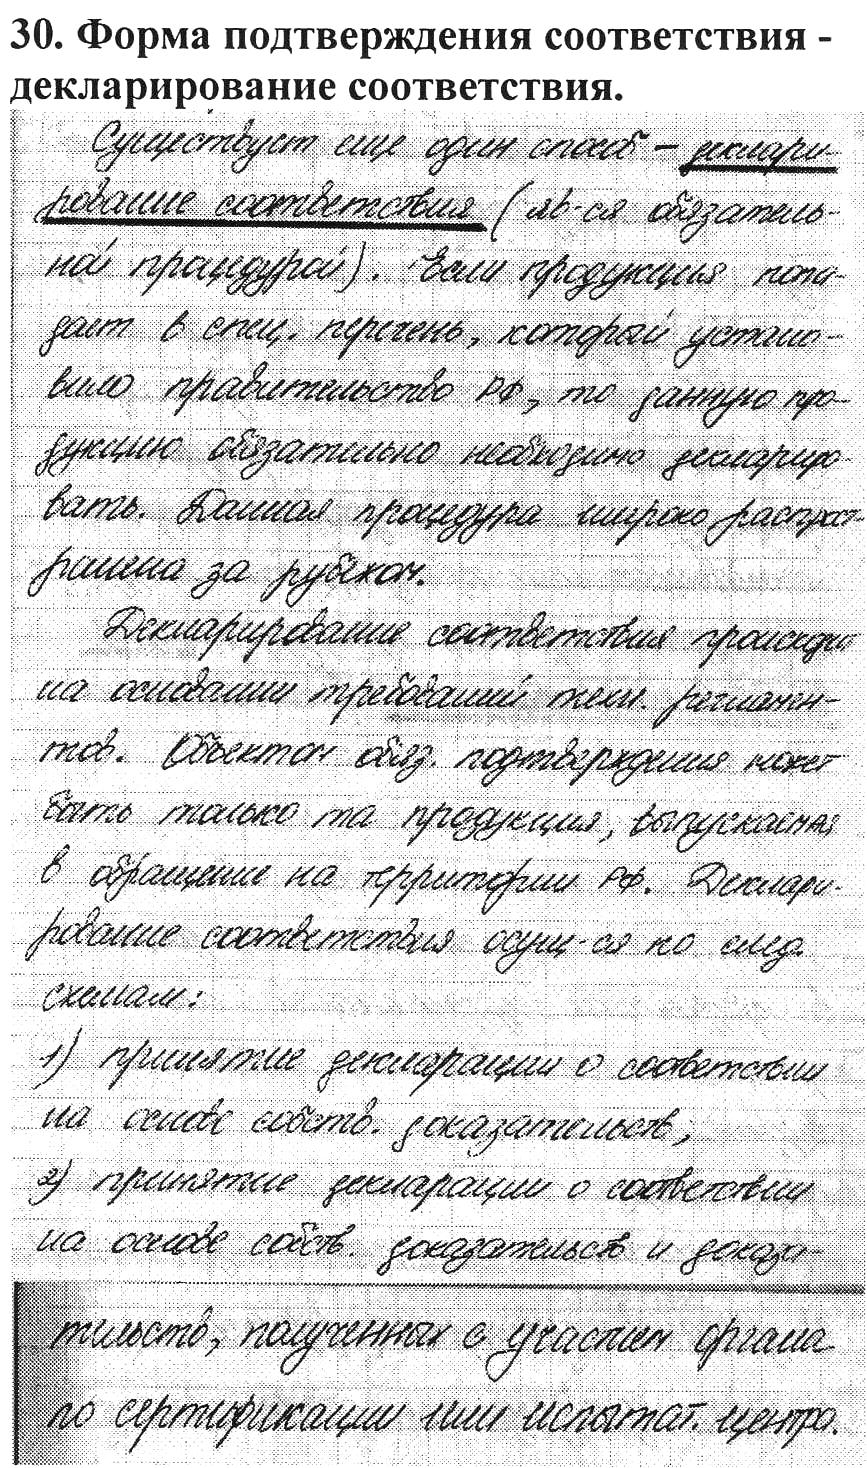 30. Форма подтверждения соответствия -
декларирование соответствия.
Существует еще один способ – деклари-
рование соответствия (яв-ся обязатель-
ной процедурой). Если продукция попа-
дает в спец. перечень, который устано-
вило правительство РФ, то данную про-
дукцию обязательно необходимо деклариро-
вать. Данная процедура широко распрост-
ранена за рубежом.
Декларирование соответствия происходит
на основании требований техн. регламен-
тов. Объектом обяз. подтверждения может
быть только та продукция, выпускаемая
в обращение на территории РФ. Деклари-
рование соответствия осущ-ся по след.
схемам:
1) принятие декларации о соответствии
на основе собств. доказательств,
2) принятие декларации о соответствии
на основе собств. доказательств и доказа-
тельств, полученных с участием органа
по сертификации или испытат. центра.